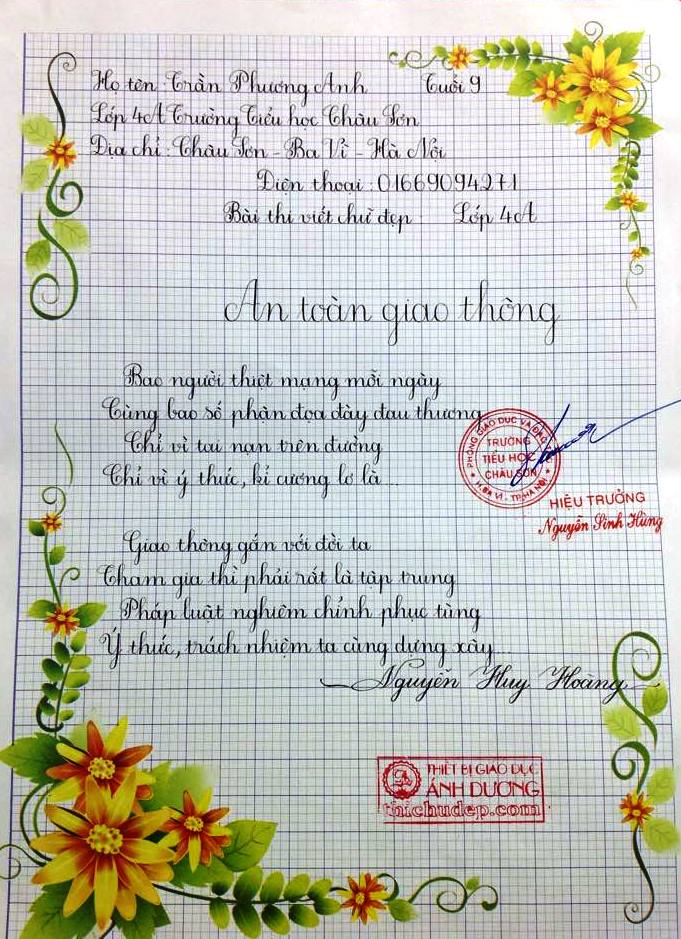 Họ tên: Trần Phương Anh Tuổi 9
Lớp 4A Trường Tiểu học Châu Sơn
Địa chỉ: Châu Sơn - Ba Vì - Hà Nội
Điện thoại: 01669094271
Bài thi viết chữ đẹp Lớp 4A
An toàn giao thông
Bao người thiệt mạng mỗi ngày
Cùng bao số phận đọa đày đau thương
Chỉ vì tai nạn trên đường
Chỉ vì ý thức, kỉ cương lơ là
PHÒNG GIÁO DỤC VÀ ĐÀO
TRƯỜNG
TIỂU HỌC
CHÂU SƠN
H. BA VÌ - TP. HÀ NỘI
HIỆU TRƯỞNG
Nguyễn Sinh Hùng
Giao thông gắn với đời ta
Tham gia thì phải rất là tập trung
Pháp luật nghiêm chỉnh phục tùng
Ý thức, trách nhiệm ta cùng dựng xây...
Nguyễn Huy Hoàng
THIẾT BỊ GIÁO DỤC
ÁNH DƯƠNG
thichudep.com